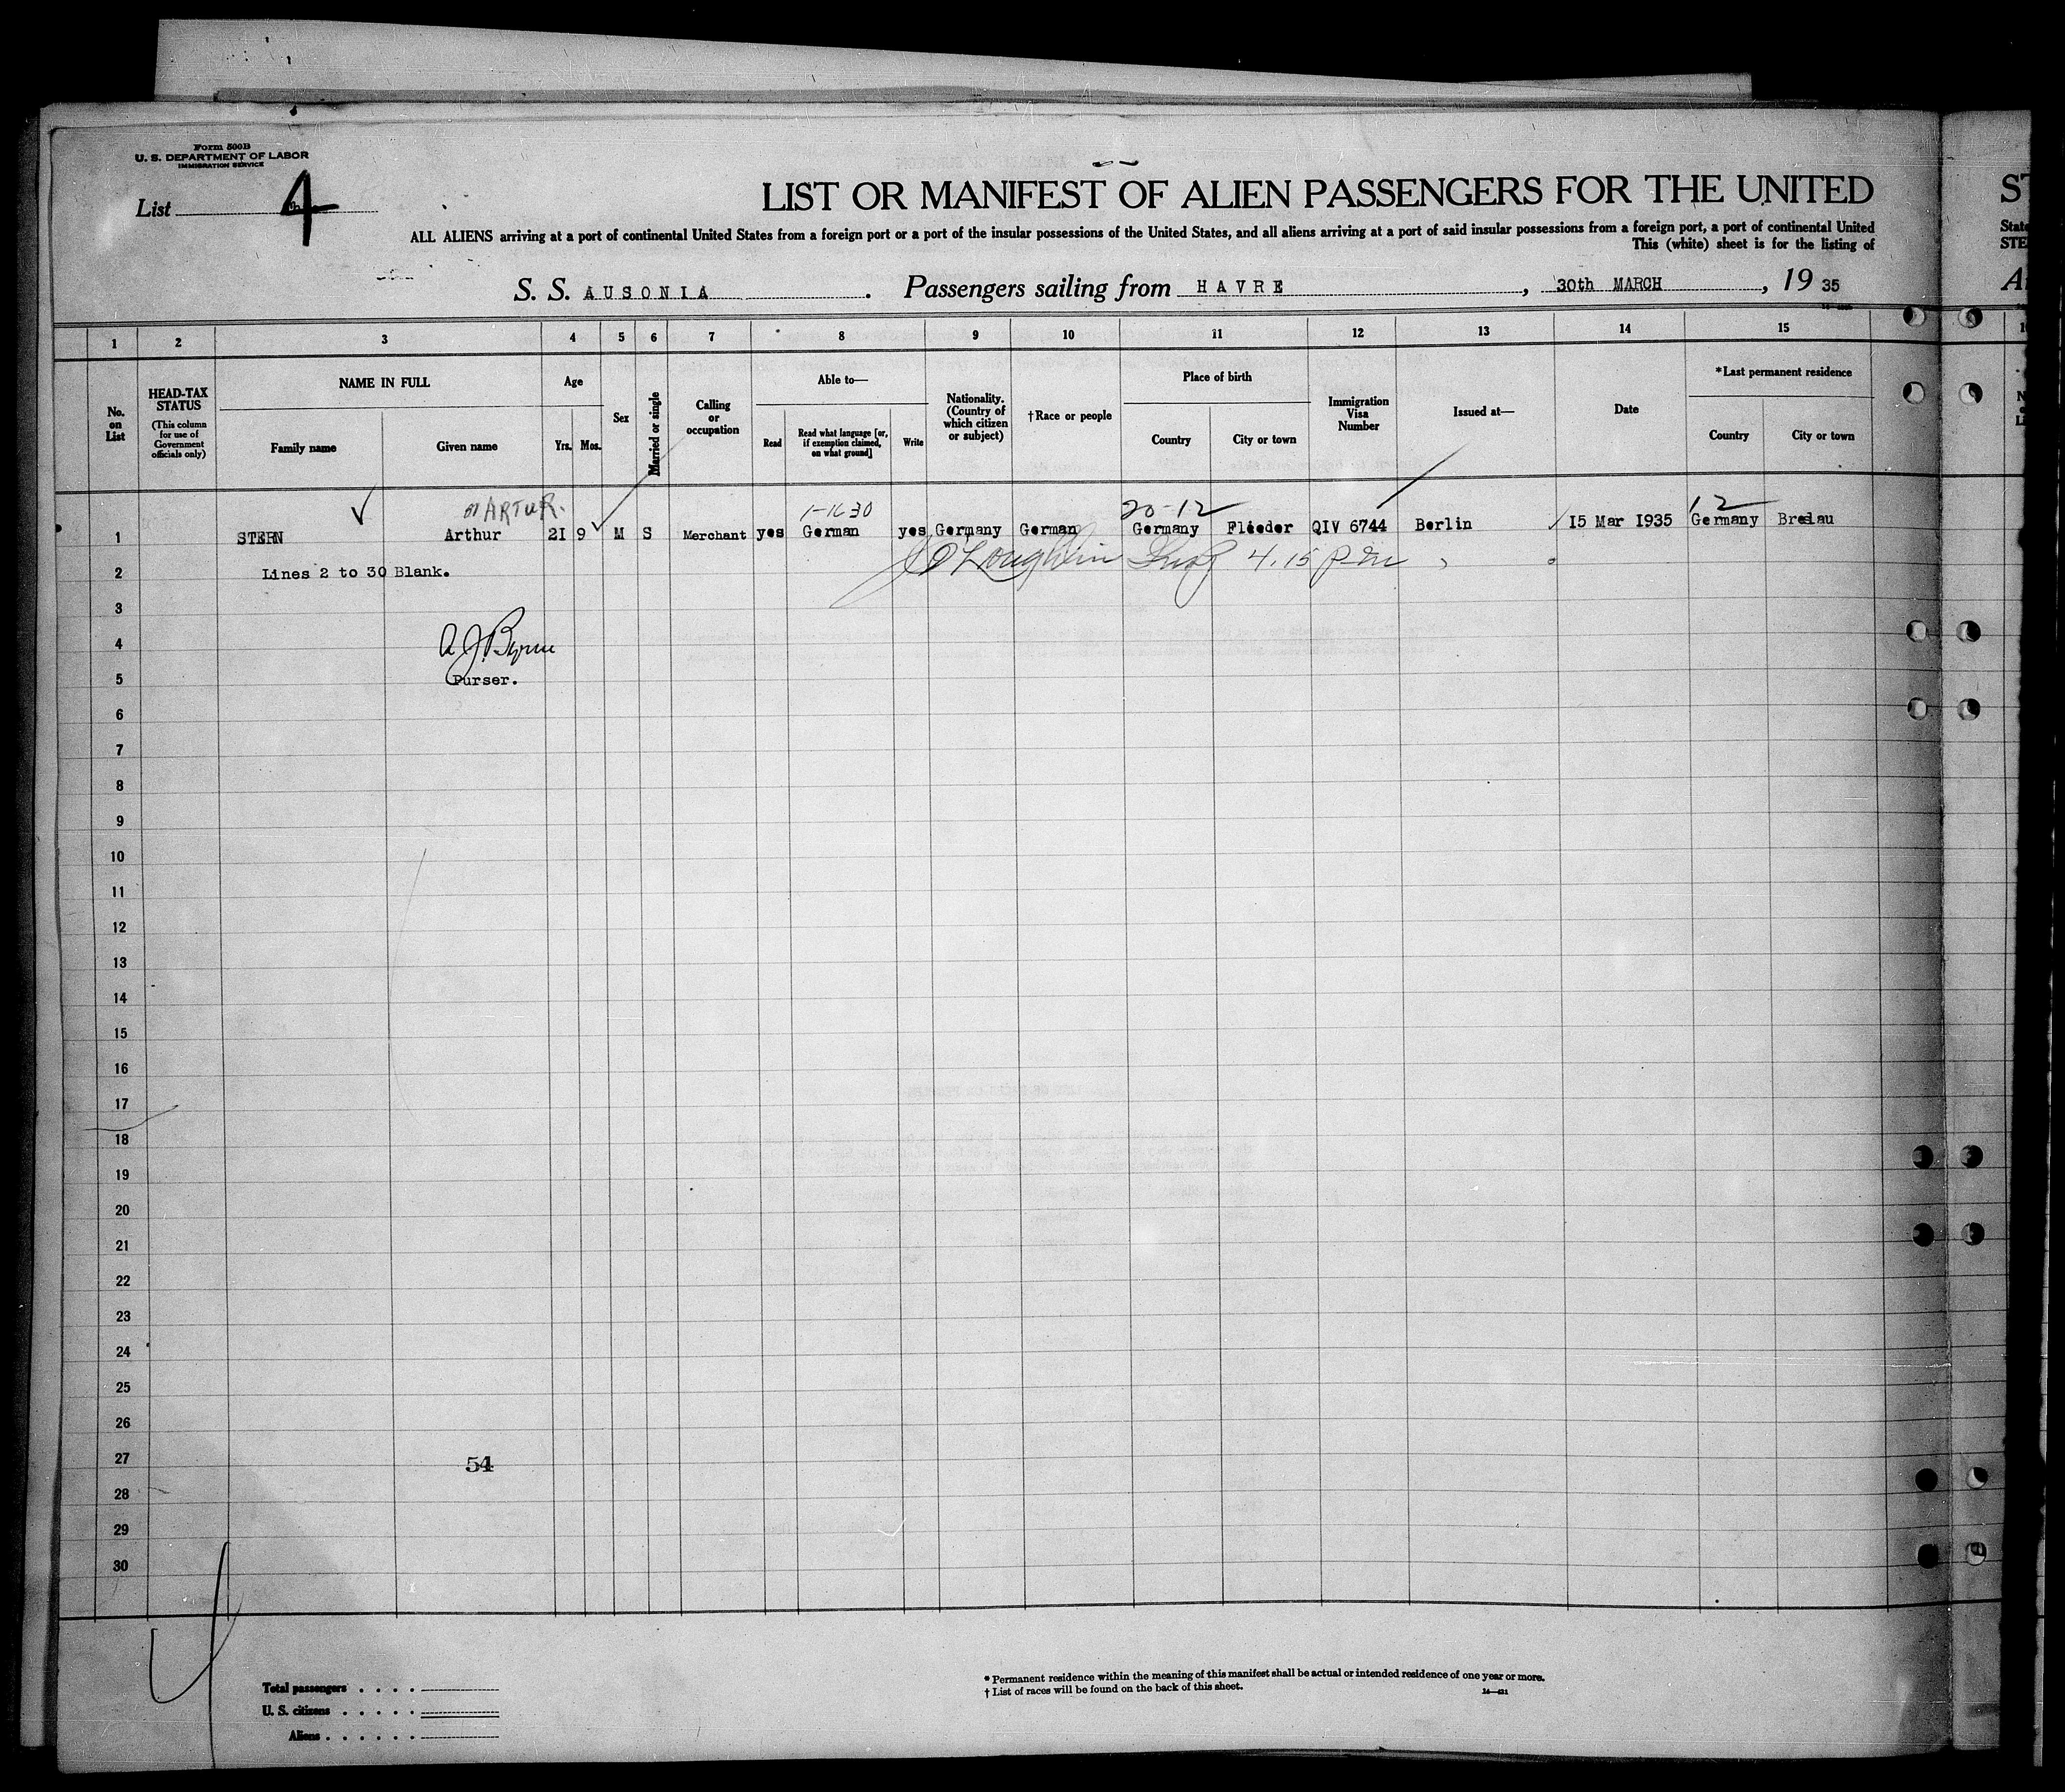 Form 500B
U. S. DEPARTMENT OF LABOR
IMMIGRATION SERVICE
List 4
LIST OR MANIFEST OF ALIEN PASSENGERS FOR THE UNITED
ST
ALL ALIENS arriving at a port of continental United States from a foreign port or a port of the insular possessions of the United States, and all aliens arriving at a port of said insular possessions from a foreign port, a port of continental United
State
This (white) sheet is for the listing of
STE
S. S. AUSONIA . Passengers sailing from HAVRE , 30th MARCH , 19 35
1 2 3 4 5 6 7 8 9 10 11 12 13 14 15
No. on List
HEAD-TAX STATUS
(This column for use of Government officials only)
NAME IN FULL
Family name
Given name
Age
Yrs. Mos.
Sex
Married or single
Calling or occupation
Able to—
Read
Read what language [or, if exemption claimed, on what ground]
Write
Nationality. (Country of which citizen or subject)
†Race or people
Place of birth
Country
City or town
Immigration Visa Number
Issued at—
Date
*Last permanent residence
Country
City or town
ARTUR. 20-12 12
1 STERN Arthur 21 9 M S Merchant yes German yes Germany German Germany Flieder QIV 6744 Berlin 15 Mar 1935 Germany Breslau
2 Lines 2 to 30 Blank. 4.15 pm
3
4 A J Byrne
5 Purser.
6
7
8
9
10
11
12
13
14
15
16
17
18
19
20
21
22
23
24
25
26
27 54
28
29
30
Total passengers . . . .
U. S. citizens . . . . .
Aliens . . . . . .
* Permanent residence within the meaning of this manifest shall be actual or intended residence of one year or more.
† List of races will be found on the back of this sheet.